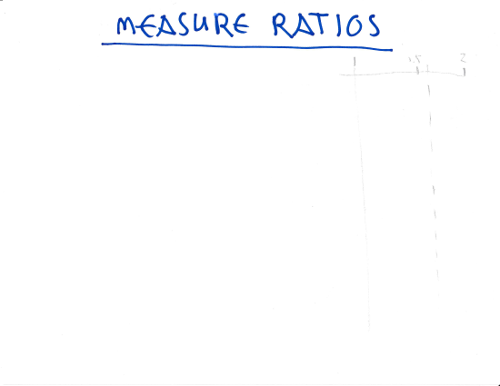 MEASURE RATIOS
1 1.5 2